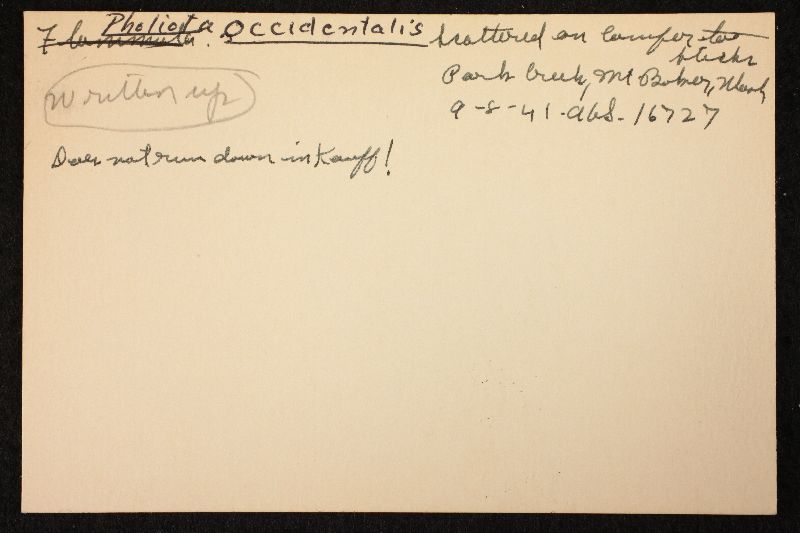 Pholiota occidentalis
Flammula. scattered on conifer
sticks
Park Creek, Mt Baker, Wash
written up
9-8-41-AHS-16727
Does not run down in Kauff!